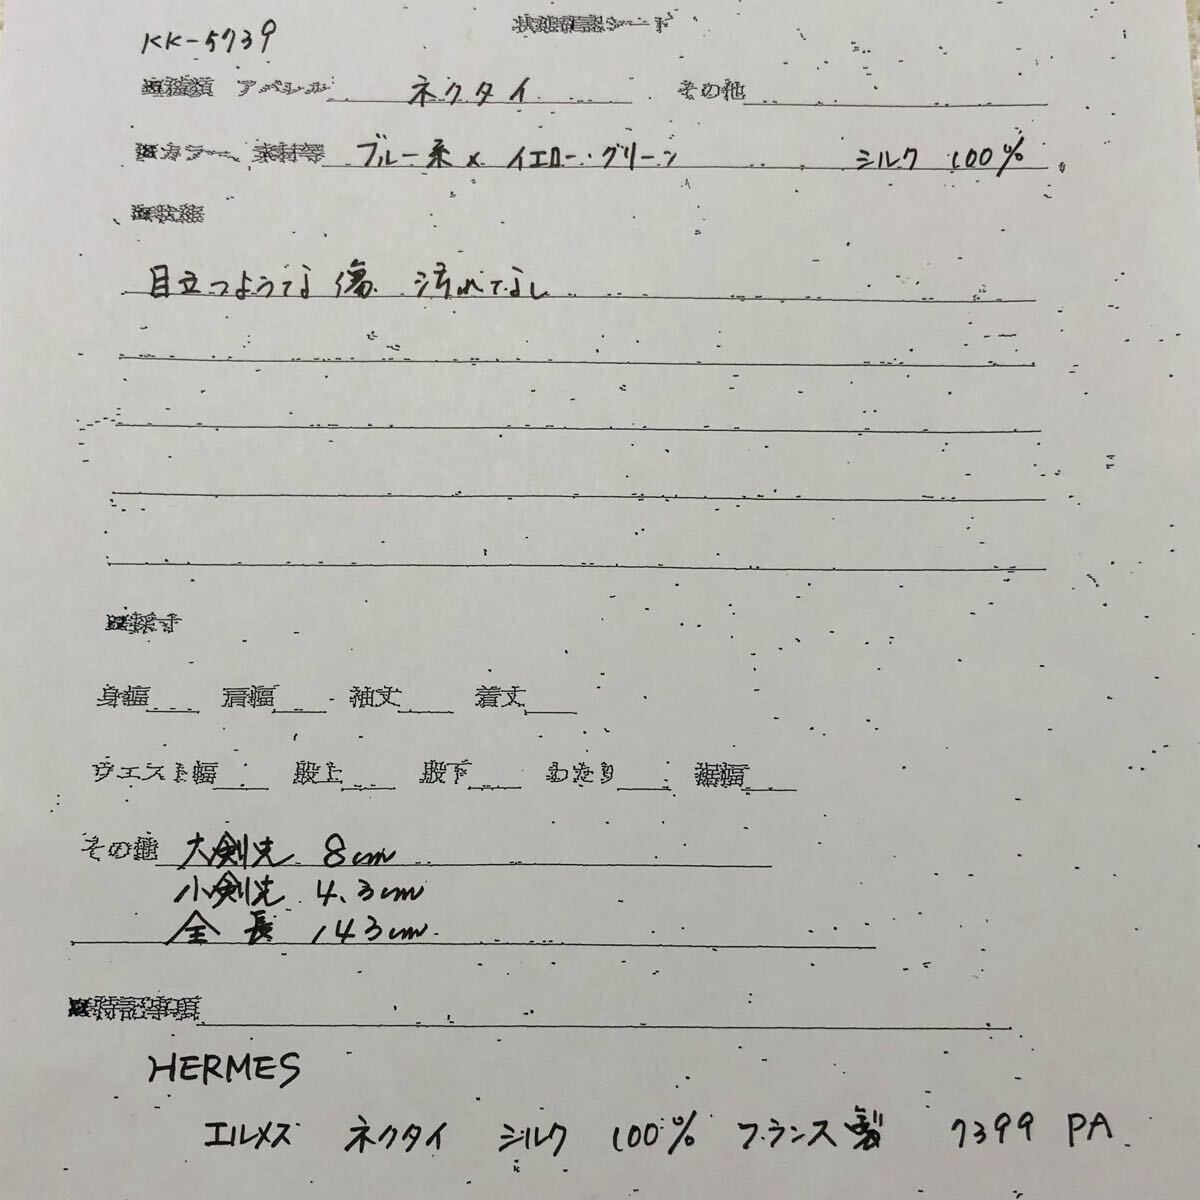 KK-5739
状態確認シート
■種類 アパレル ネクタイ その他
■カラー、素材等 ブルー系 × イエロー・グリーン シルク 100%
■状態
目立つような傷 汚れてなし
■採寸
身幅 肩幅 袖丈 着丈
ウエスト幅 股上 股下 わたり 裾幅
その他 大剣先 8cm
小剣先 4.3cm
全長 143cm
■特記事項
HERMES
エルメス ネクタイ シルク 100% フランス製 7399 PA